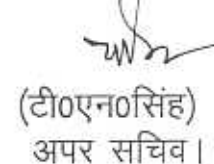 (टी0एन0सिंह)
अपर सचिव।